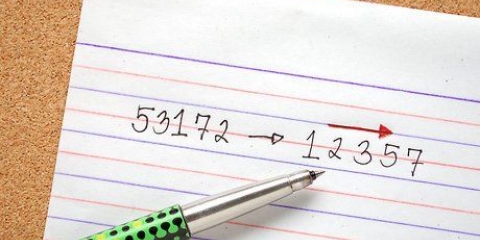 53172 → 12357